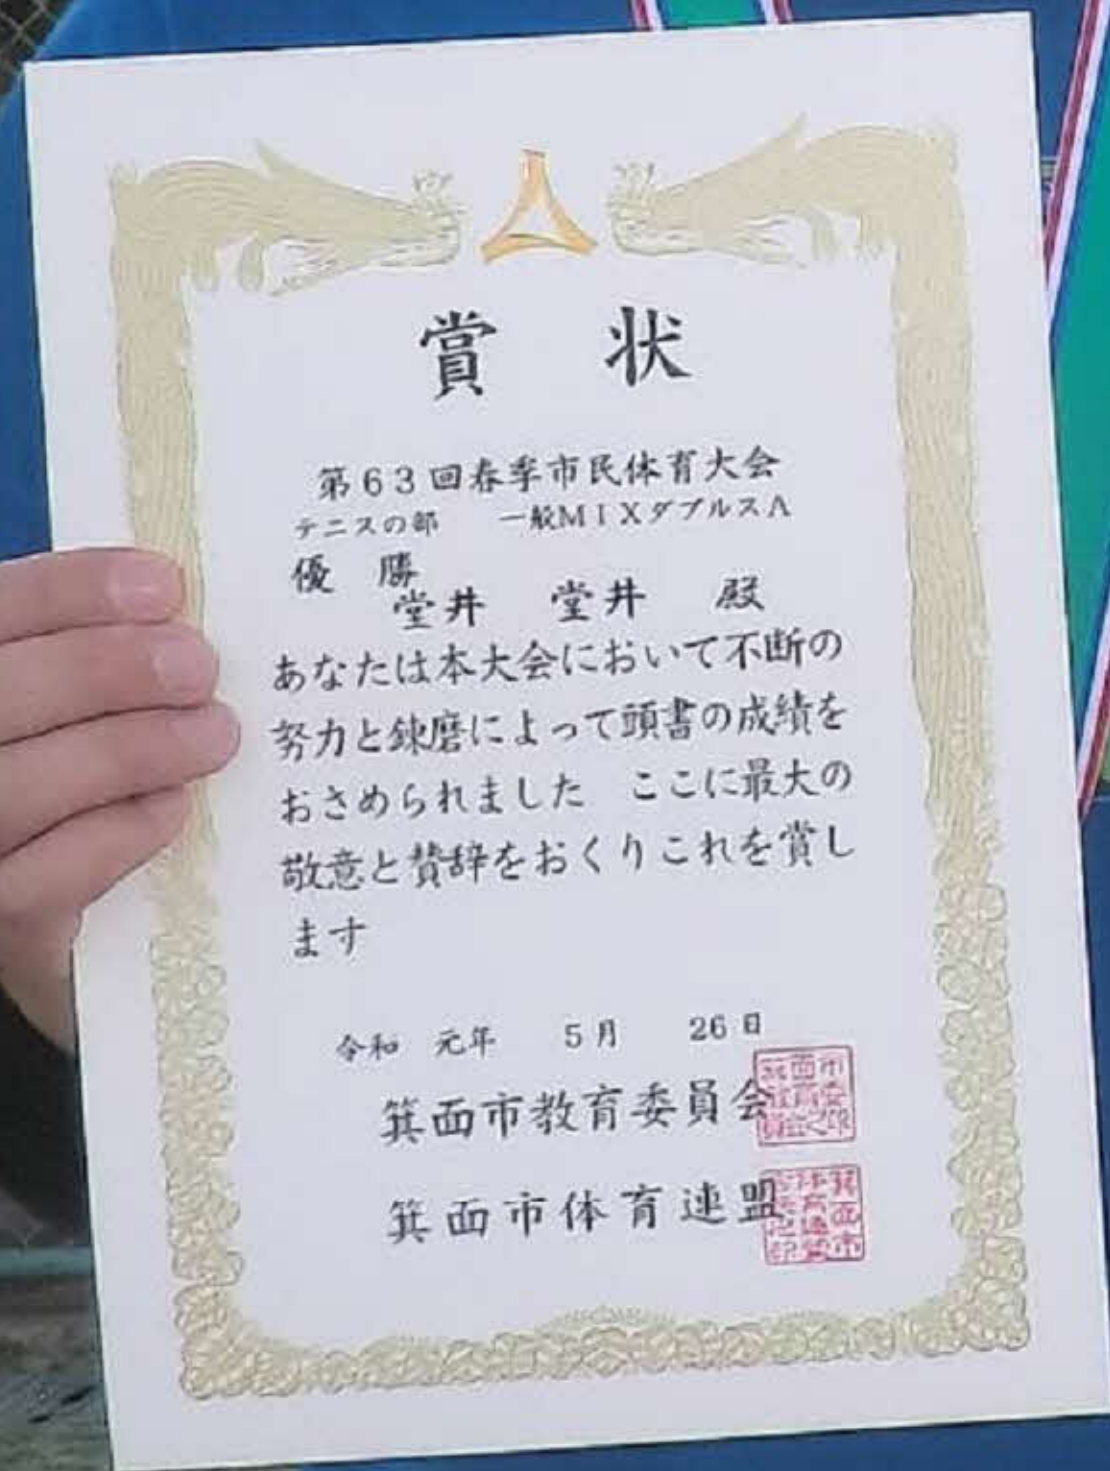 賞 状
第63回春季市民体育大会
テニスの部 一般MIXダブルスA
優 勝
堂井 堂井 殿
あなたは本大会において不断の
努力と錬磨によって頭書の成績を
おさめられました ここに最大の
敬意と賛辞をおくりこれを賞し
ます
令和 元年 5月 26日
箕面市教育委員会
箕面市体育連盟